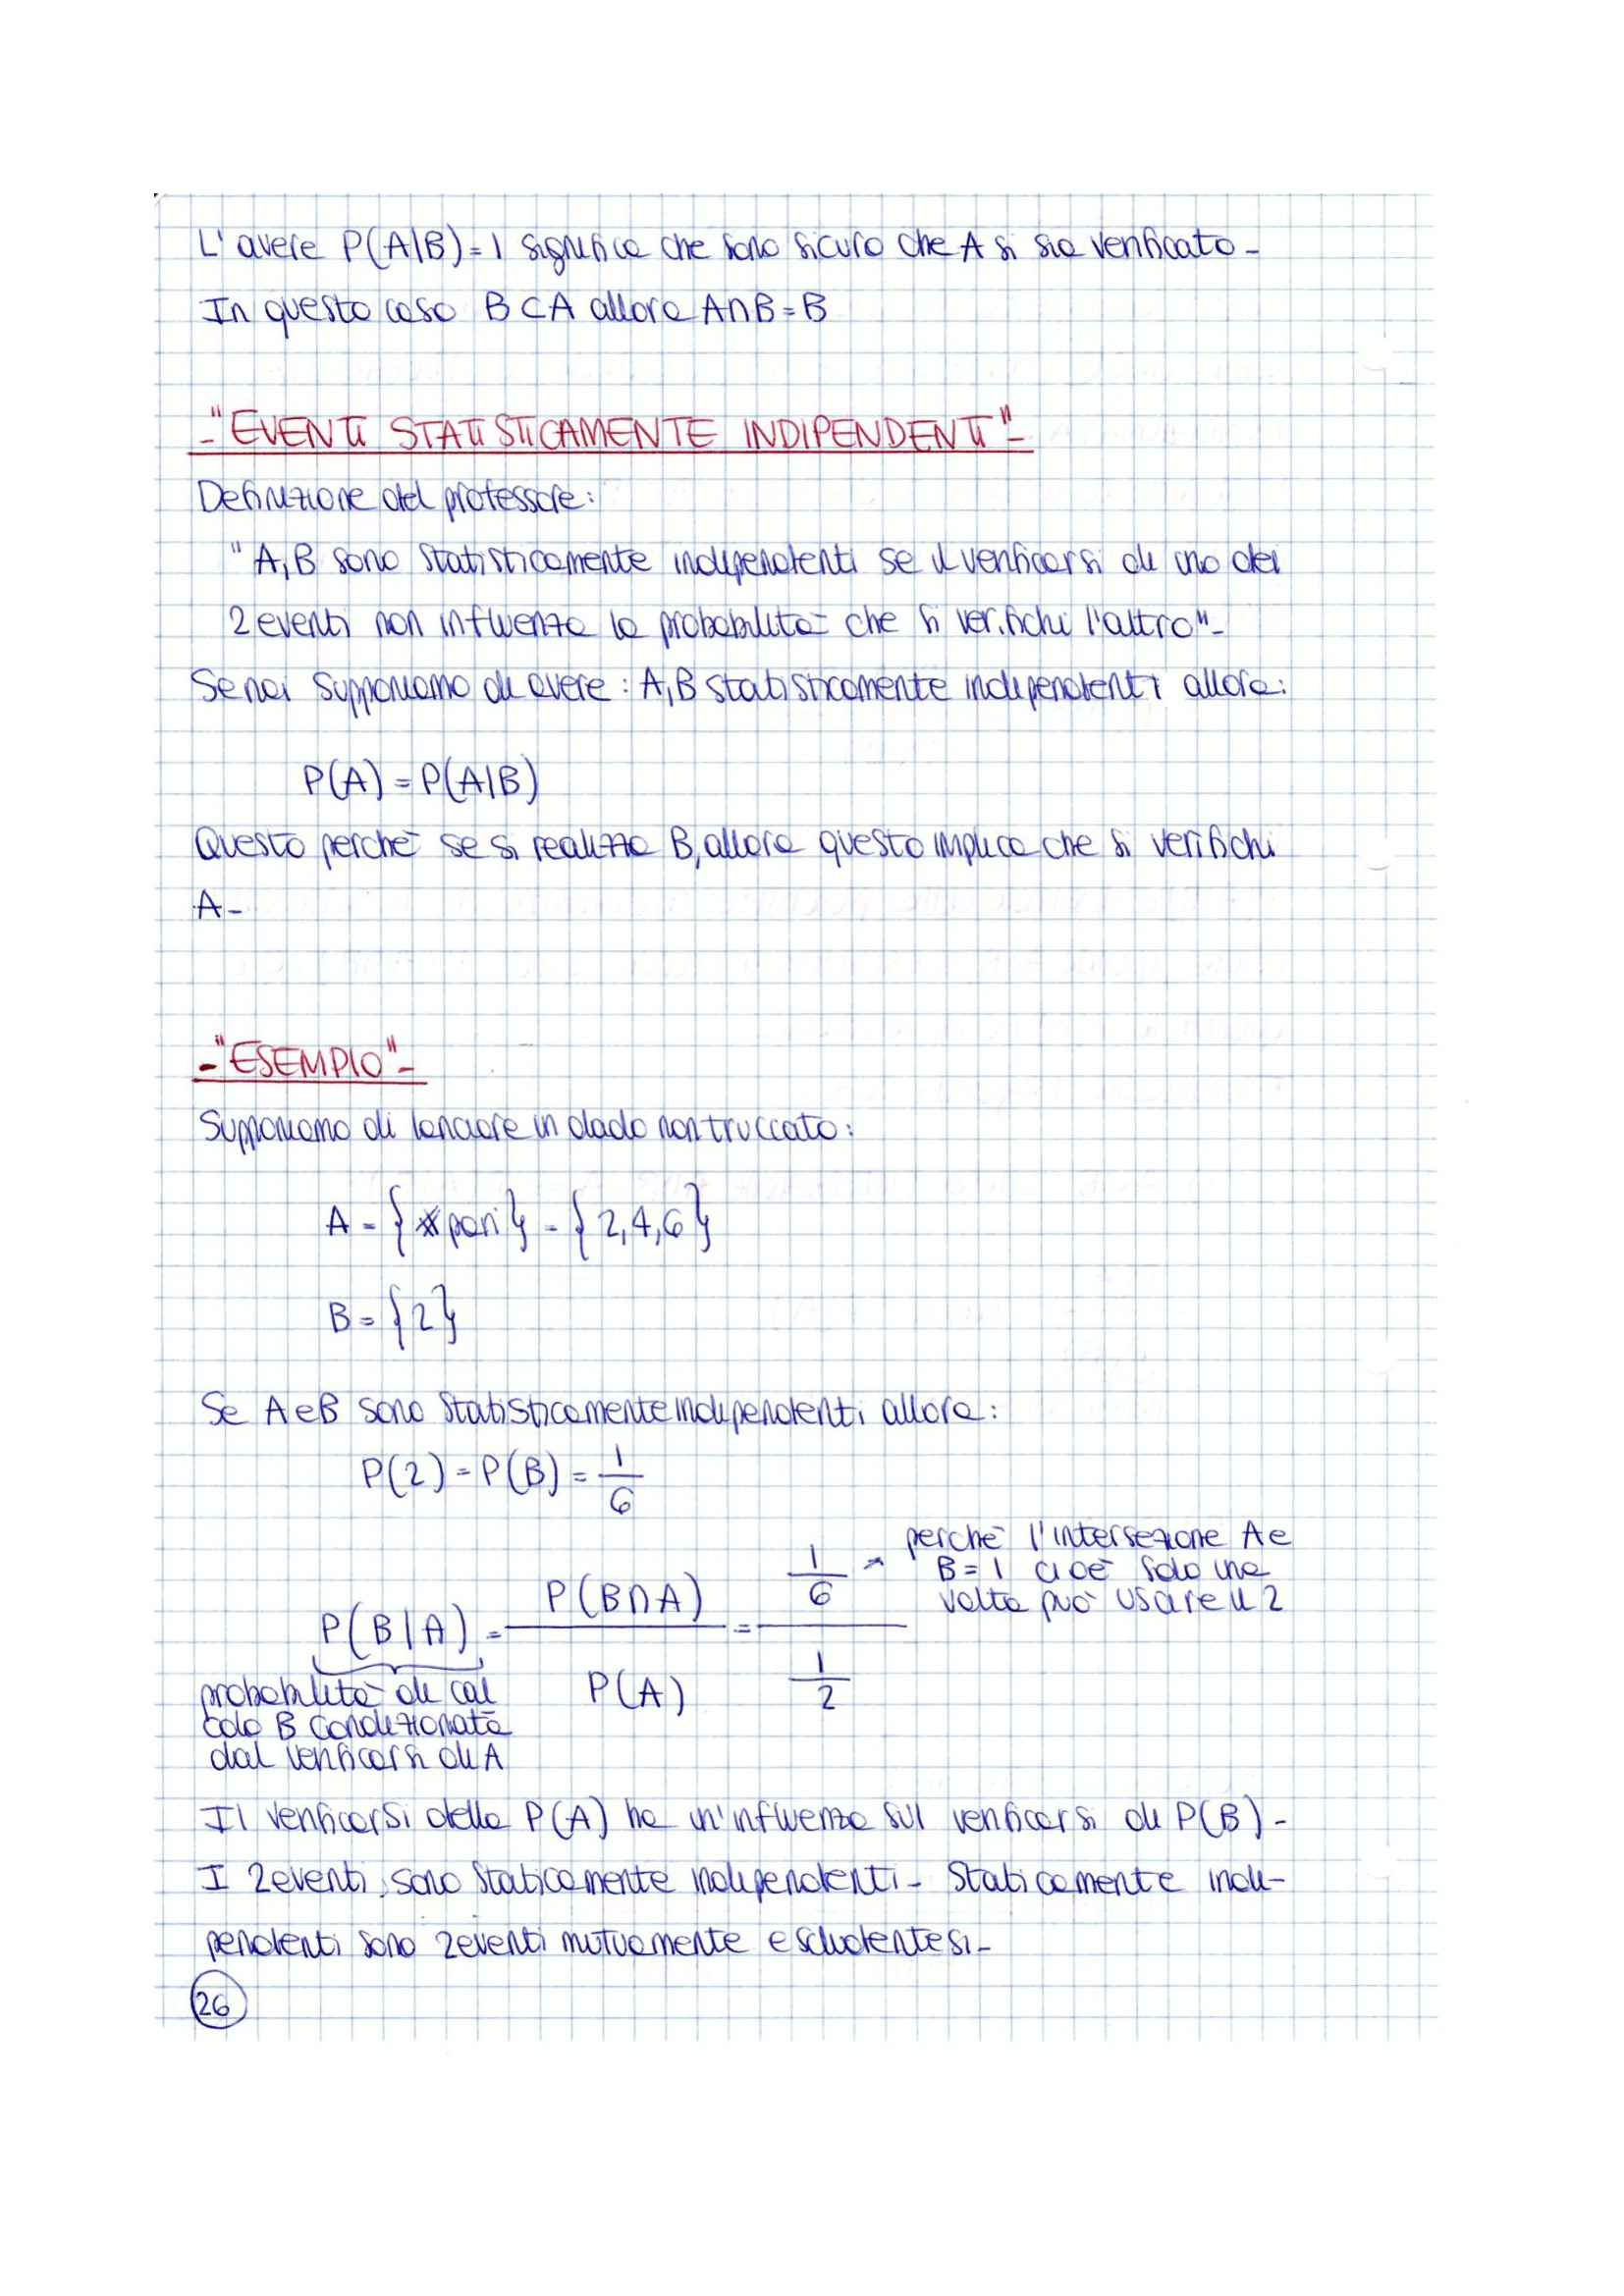 L'avere P(A|B)=1 significa che sono sicuro che A si sia verificato-
In questo caso B⊂A allora A∩B=B
-"EVENTI STATISTICAMENTE INDIPENDENTI"-
Definizione del professore:
"A,B sono statisticamente indipendenti se il verificarsi di uno dei
2 eventi non influenza la probabilità che si verifichi l'altro"-
Se noi supponiamo di avere: A,B statisticamente indipendenti allora:
P(A)=P(A|B)
Questo perchè se si realizza B, allora questo implica che si verifichi
A-
-"ESEMPIO"-
Supponiamo di lanciare un dado non truccato:
A={# pari}={2,4,6}
B={2}
Se A e B sono statisticamente indipendenti allora:
P(2)=P(B)=1/6
P(B|A)=P(B∩A)/P(A)=(1/6)/(1/2)
→ perchè l'intersezione A e
B=1 cioè solo una
volta può usare il 2
probabilità di cal
colo B condizionata
dal verificarsi di A
Il verificarsi della P(A) ha un'influenza sul verificarsi di P(B)-
I 2 eventi sono staticamente indipendenti- Staticamente indi-
pendenti sono 2 eventi mutuamente escludentesi-
26